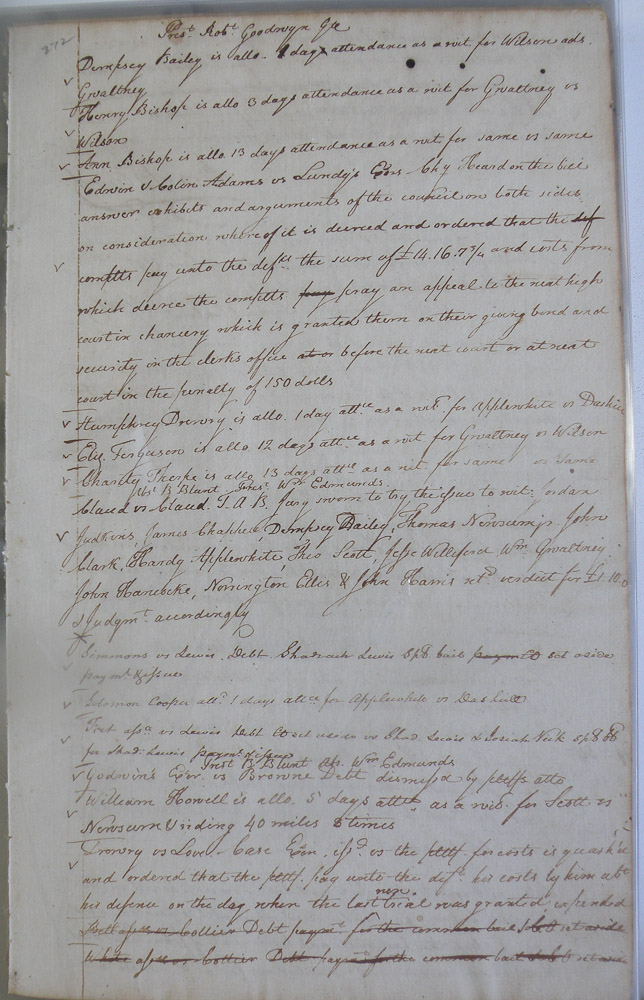 272
Prest. Robt. Goodwyn Gte
Dempsey Bailey is allo. 1 days attendance as a wit for Wilson ads.
Gwaltney
Henry Bishop is allo 3 days attendance as a wit for Gwaltney vs
Wilson
Ann Bishop is allo. 13 days attendance as a wit for same vs same
Edwin & Colin Adams vs Lundy's Exrs - Chy Heard on the bill
answer exhibits and arguments of the council on both sides
on consideration whereof it is decreed and ordered that the def
compltts pay unto the defts the sum of £14.16.7¾ and costs from
which decree the compltts pay pray an appeal to the next high
court in chancery which is granted them on their giving bond and
security in the clerks office at or before the next court or at next
court in the penalty of 150 dolls
Humphrey Drewry is allo. 1 day attce as a wit. for Applewhite vs Dashiell
Eliz. Ferguson is allo 12 days attce as a wit for Gwaltney vs Wilson
Charity Thorpe is allo 13 days attce as a wit for same vs same
Abst. B Blunt Prest. Wm Edmunds.
Claud vs Claud. T. A. B. Jury sworn to try the issue to wit: Jordan
Judkins, James Chappell, Dempsey Bailey, Thomas Newsum, John
Clark, Hardy Applewhite, Theo Scott, Jesse Williford Wm. Gwaltney
John Hancocke, Norrington Ellis & John Harris retd. verdict for £1.10.0
& Judgmt. accordingly
Simmons vs Lewis. Debt. Shadrach Lewis Spl. bail set aside
paymt. & issue
Solomon Cooper allo. 1 days attce for Applewhite vs Dashiell
Trest assee. vs Lewis Debt CO set aside vs Shad. Lewis & Josiah Vick Spl BB
for Shad. Lewis paymt. & issue
Prest B Blunt Abs. Wm Edmunds
Godwin's Exr. vs Browne Debt dismissd by pltffs atto
William Howell is allo. 5 days attce as a wit. for Scott vs
Newsum & riding 40 miles 5 times
Drewry vs Love - Case Exon. issd. vs the pltff. for costs is quash'd
and ordered that the pltff. pay unto the deft. his costs by him abt.
new
his defense on the day when the last trial was granted expended
assee vs Collier Debt paymt. for the common bail & set aside
White assee vs Collier Debt paymt for the common bail & set aside